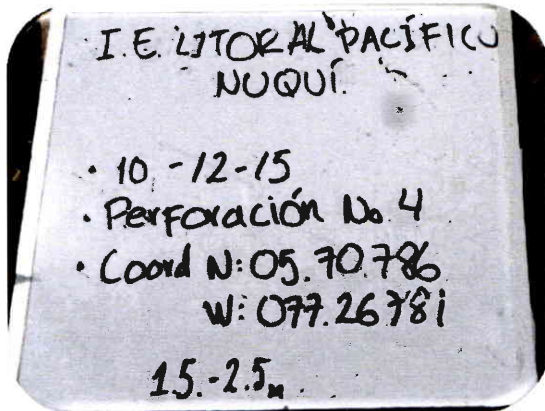 I.E. LITORAL PACÍFICO
NUQUÍ.
• 10 -12-15
• Perforación No. 4
• Coord N: 05.70.786
W: 077.26781
1.5.-2.5m